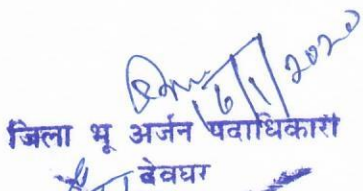 16/1/2020
जिला भू अर्जन पदाधिकारी
देवघर